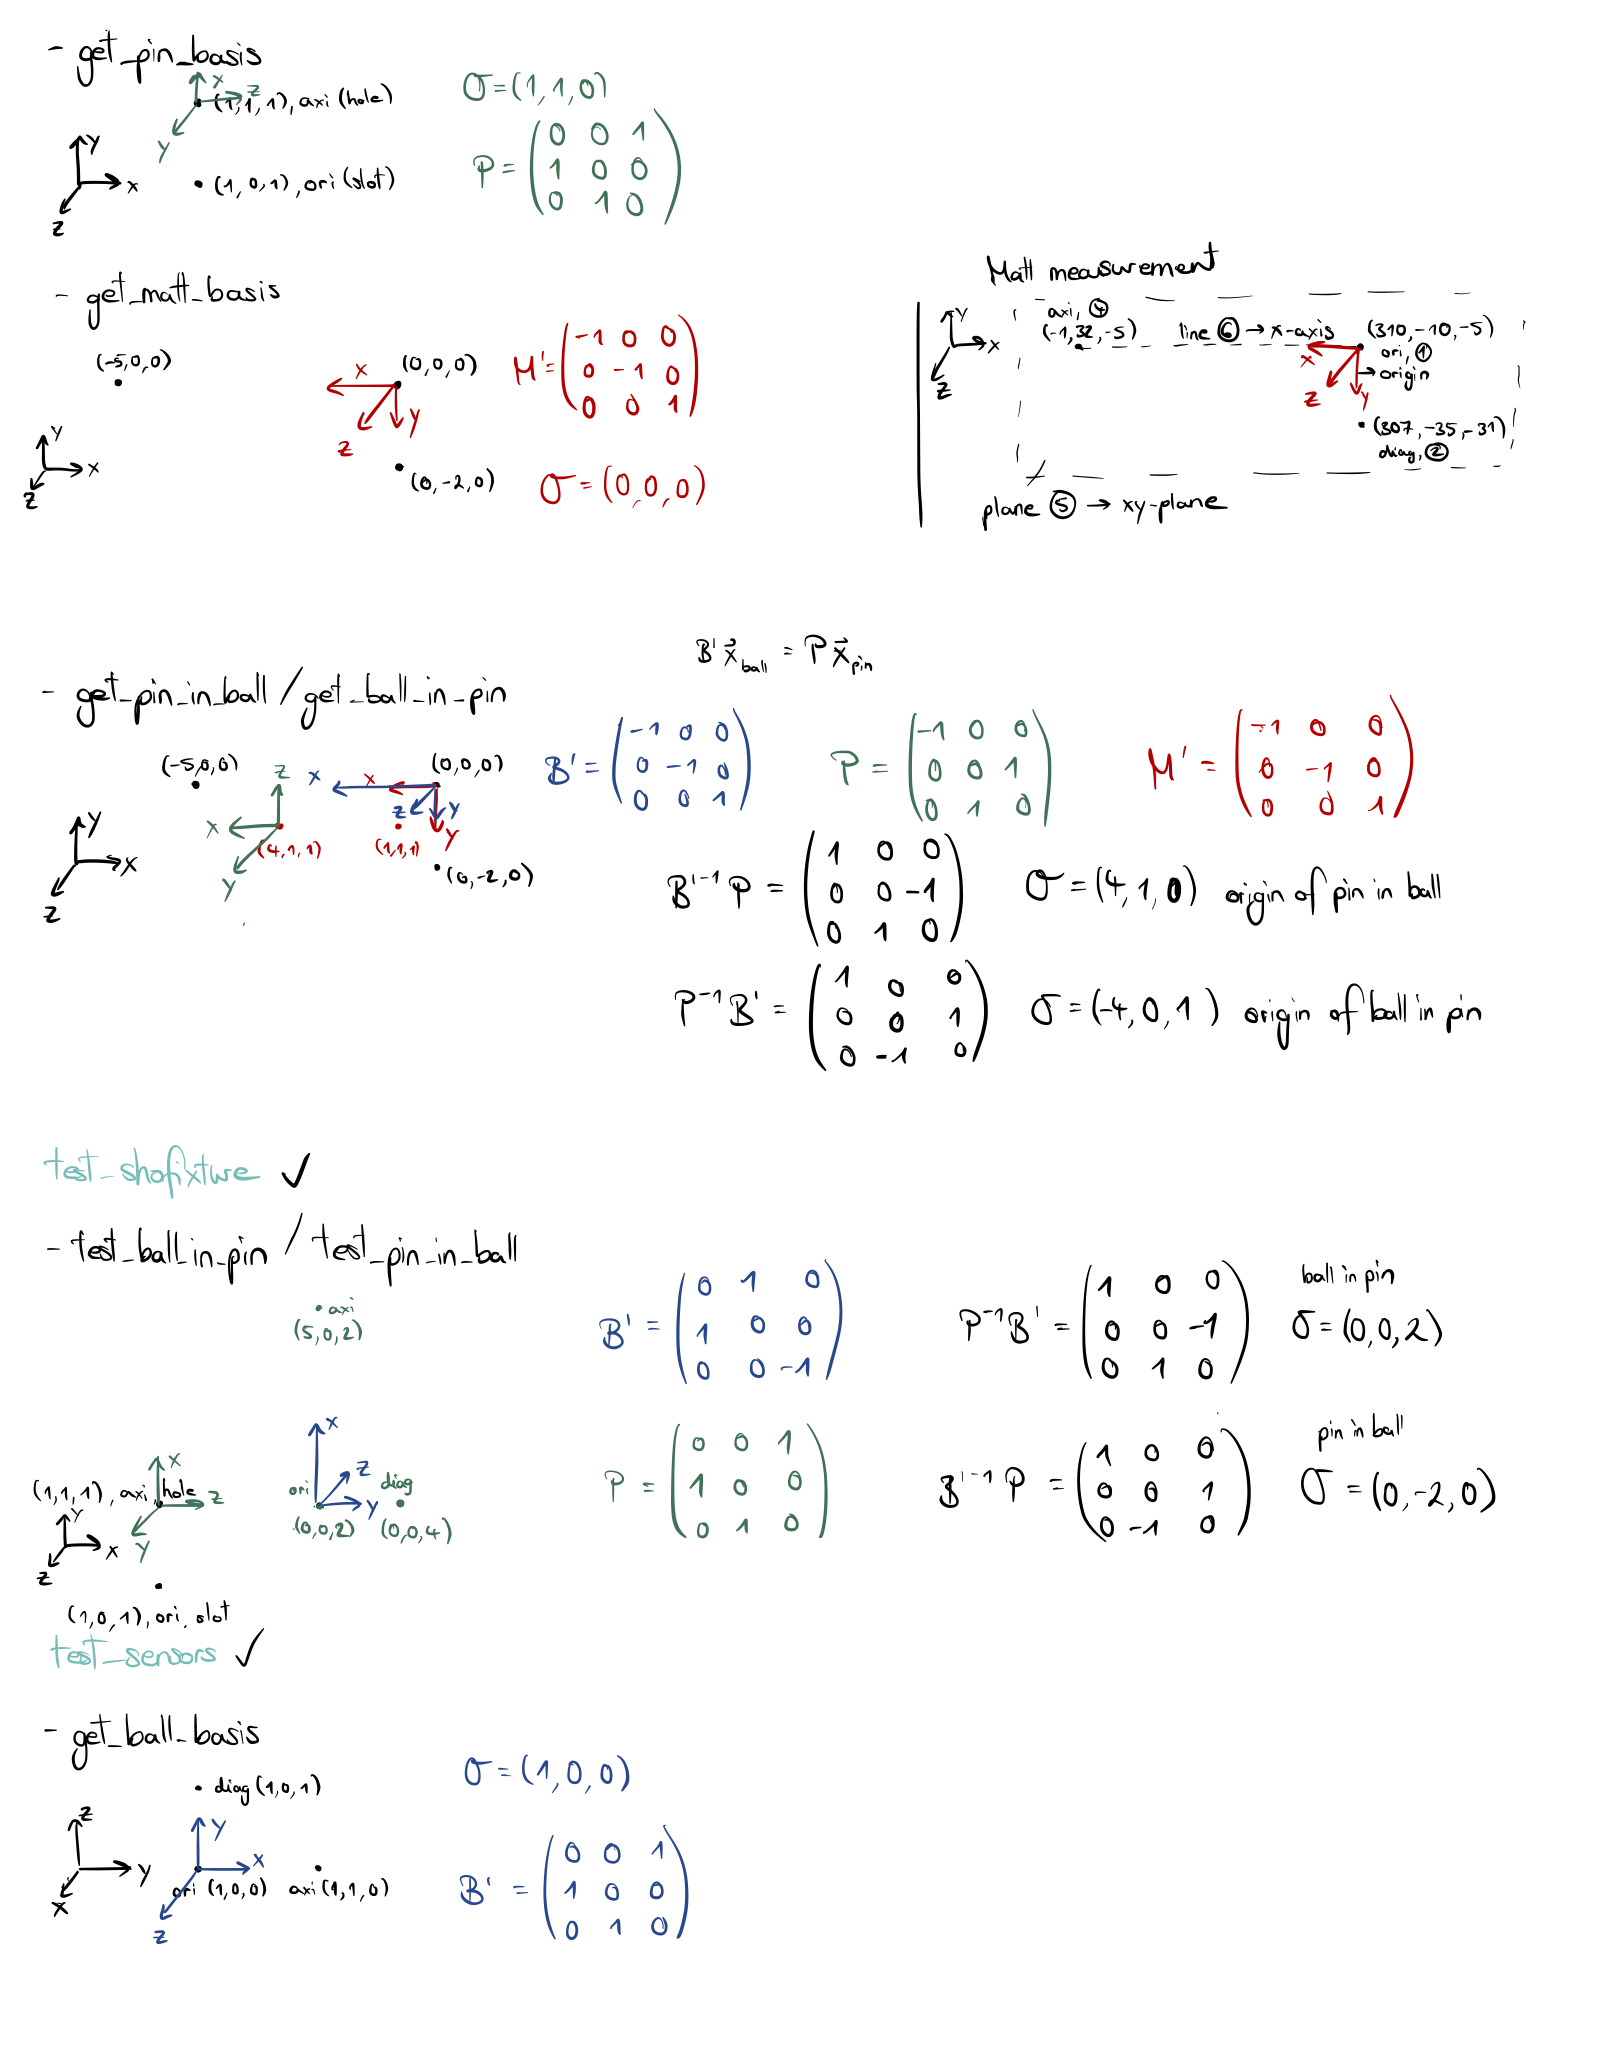 - get_pin_basis
X
Z
(1,1,1), axi (hole)
Y
Y
X
Z
(1,0,1), ori (slot)
O = (1,1,0)
P = ( 0 0 1
1 0 0
0 1 0 )
- get_matt_basis
(-5,0,0)
X
(0,0,0)
Y
Z
Y
X
Z
(0,-2,0)
M' = ( -1 0 0
0 -1 0
0 0 1 )
O = (0,0,0)
Matt measurement
Y
X
Z
axi, ④
(-1,32,-5)
line ⑥ → x-axis
(310,-10,-5)
ori, ①
→ origin
X
Z
Y
(307,-35,-31)
diag, ②
plane ⑤ → xy-plane
B' x⃗ ball = P x⃗ pin
- get_pin_in_ball / get_ball_in_pin
(-5,0,0)
Z
X
X
(0,0,0)
Z
Y
X
(4,1,1)
(1,1,1)
Y
Y
Y
X
Z
(0,-2,0)
B' = ( -1 0 0
0 -1 0
0 0 1 )
P = ( -1 0 0
0 0 1
0 1 0 )
M' = ( -1 0 0
0 -1 0
0 0 1 )
B'⁻¹ P = ( 1 0 0
0 0 -1
0 1 0 )
O = (4,1,0) origin of pin in ball
P⁻¹ B' = ( 1 0 0
0 0 1
0 -1 0 )
O = (-4,0,1) origin of ball in pin
test_shofixture ✓
- test_ball_in_pin / test_pin_in_ball
axi
(5,0,2)
B' = ( 0 1 0
1 0 0
0 0 -1 )
P⁻¹ B' = ( 1 0 0
0 0 -1
0 1 0 )
ball in pin
O = (0,0,2)
X
(1,1,1), axi, hole
Z
Y
Y
X
Z
(1,0,1), ori, slot
X
Z
Y
ori
(0,0,2)
diag
(0,0,4)
P = ( 0 0 1
1 0 0
0 1 0 )
B'⁻¹ P = ( 1 0 0
0 0 1
0 -1 0 )
pin in ball
O = (0,-2,0)
test_sensors ✓
- get_ball_basis
diag (1,0,1)
Z
Y
X
Y
X
Z
ori (1,0,0)
axi (1,1,0)
O = (1,0,0)
B' = ( 0 0 1
1 0 0
0 1 0 )